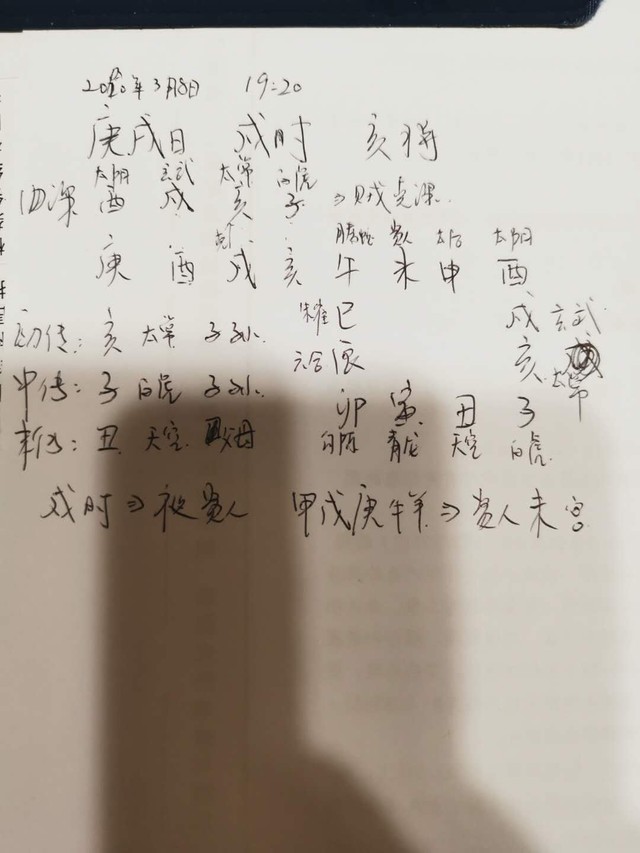 2020年3月8日 19:20
庚戌日 戌时 亥将
太阴 玄武 太常 白虎
四课 酉 戌 亥 子 ⇒贼克课.
克 螣蛇 贵人 太后 太阴
庚 酉 戌 亥 午 未 申 酉
朱雀 巳 戌 玄武
初传: 亥 太常 子孙.
六合 辰 亥 太常
中传: 子 白虎 子孙.
卯 寅 丑 子
末传: 丑 天空 父母
勾陈 青龙 天空 白虎
戌时⇒夜贵人 甲戊庚牛羊⇒贵人未宫